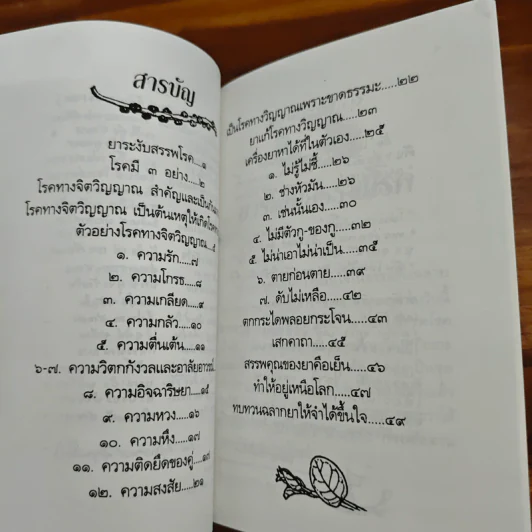 สารบัญ
ยาระงับสรรพโรค....๑
โรคมี ๓ อย่าง....๒
โรคทางจิตวิญญาณ สำคัญและเป็นกัน
โรคทางจิตวิญญาณ เป็นต้นเหตุให้เกิดโรค
ตัวอย่างโรคทางจิตวิญญาณ
๑. ความรัก....๗
๒. ความโกรธ....๘
๓. ความเกลียด....๙
๔. ความกลัว....๑๐
๕. ความตื่นเต้น....๑๑
๖-๗. ความวิตกกังวลและอาลัยอาวรณ์
๘. ความอิจฉาริษยา....๑๔
๙. ความหวง....๑๖
๑๐. ความหึง....๑๗
๑๑. ความติดยึดของคู่
๑๒. ความสงสัย....๒๑
เป็นโรคทางวิญญาณเพราะขาดธรรมะ.....๒๒
ยาแก้โรคทางวิญญาณ.....๒๓
เครื่องยาหาได้ที่ในตัวเอง.....๒๕
๑. ไม่รู้ไม่ชี้.....๒๖
๒. ช่างหัวมัน.....๒๖
๓. เช่นนั้นเอง.....๓๐
๔. ไม่มีตัวกู-ของกู.....๓๒
๕. ไม่น่าเอาไม่น่าเป็น.....๓๕
๖. ตายก่อนตาย.....๓๙
๗. ดับไม่เหลือ.....๔๒
ตกกระไดพลอยกระโจน.....๔๓
เสกคาถา.....๔๕
สรรพคุณของยาคือเย็น.....๔๖
ทำให้อยู่เหนือโลก.....๔๗
ทบทวนฉลากยาให้จำได้ขึ้นใจ.....๔๙